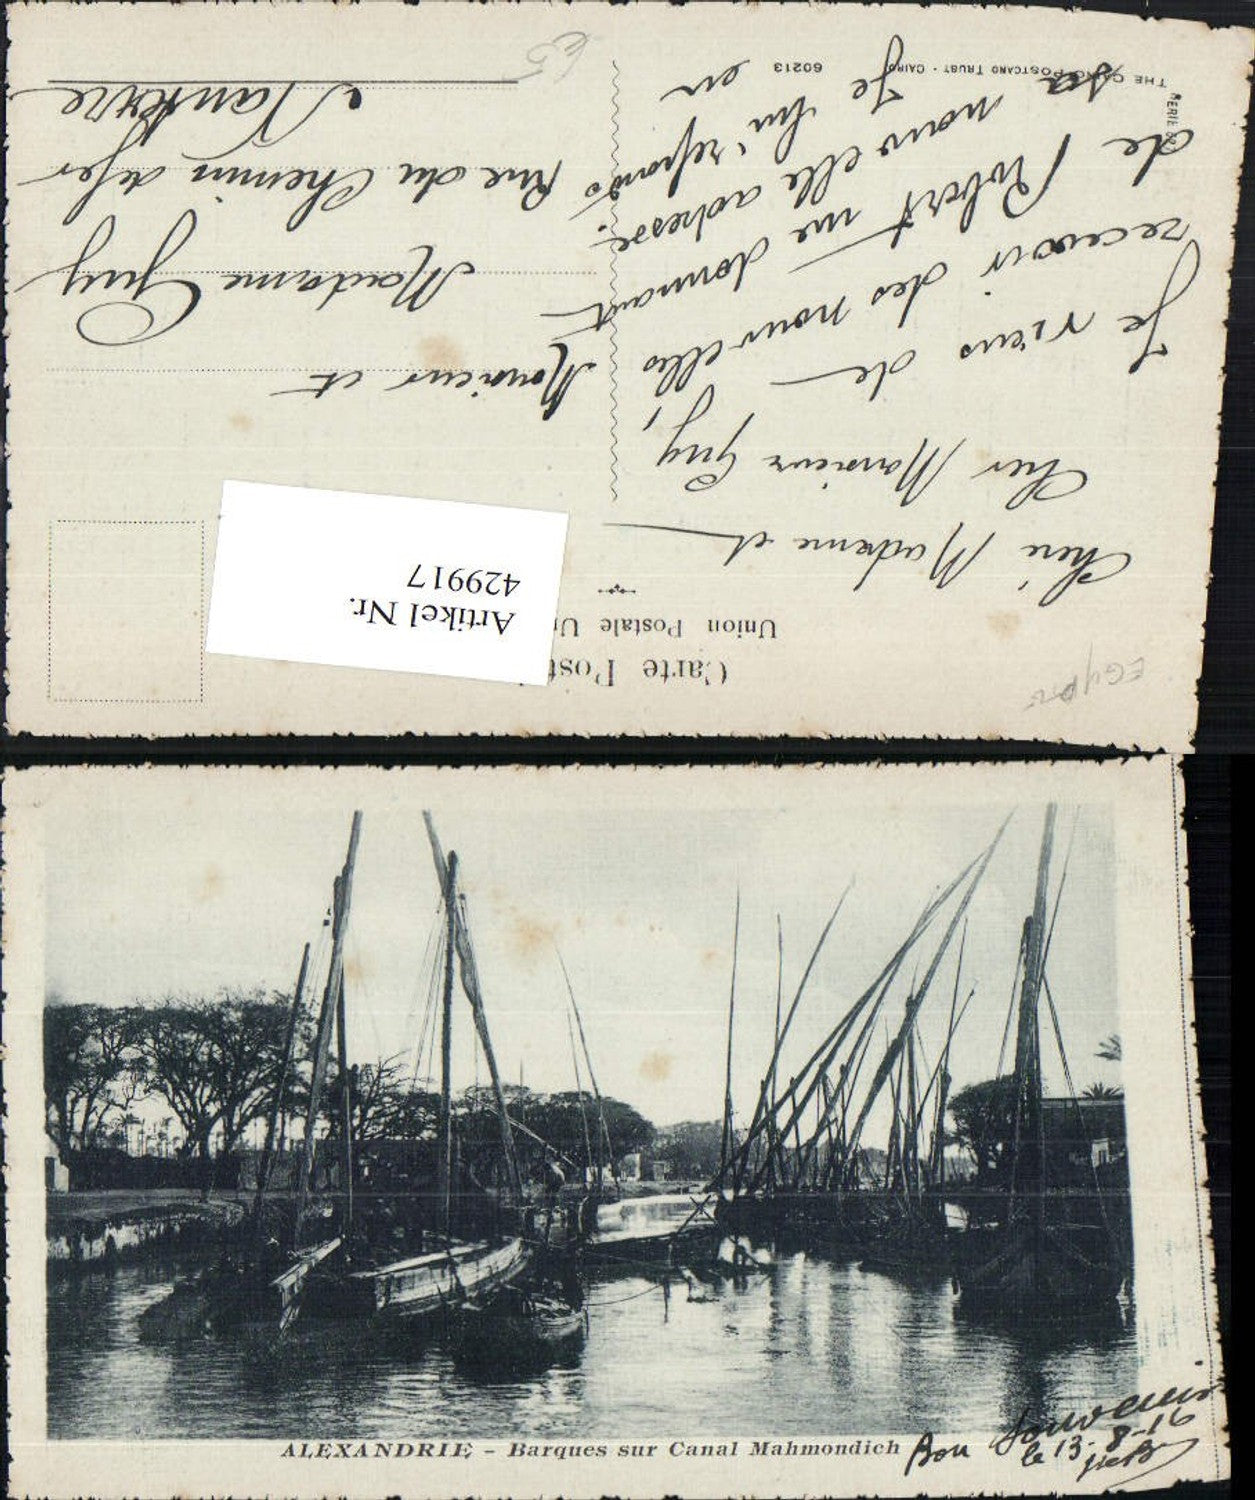 Carte Post
Union Postale Un
Artikel Nr.
429917
EGypte
Chère Madame et
Cher Monsieur Guy,
Je viens de
recevoir des nouvelles
de Robert me donnant
sa nouvelle adresse.
Je lui réponds
en
Monsieur et
Madame Guy
Rue du Chemin de fer
Nanterre
THE CAIRO POSTCARD TRUST - CAIRO
60213
SERIE
ALEXANDRIE - Barques sur Canal Mahmondich
Bon Souvenir
le 13-8-16